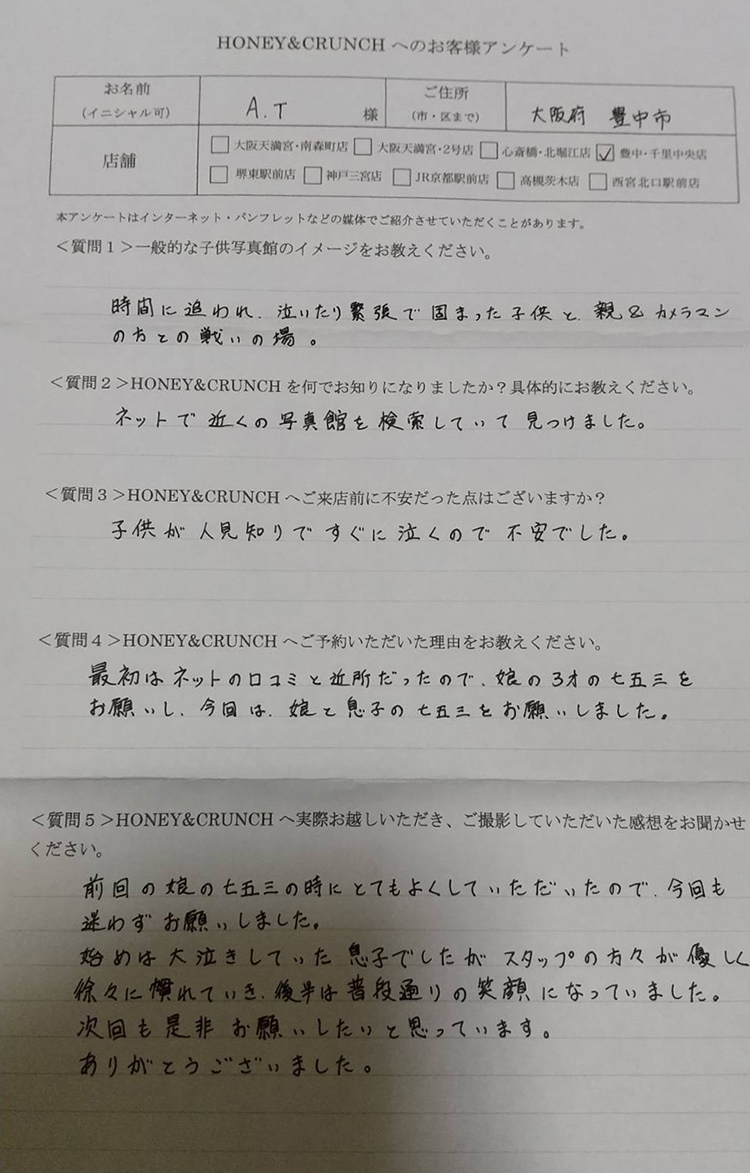 HONEY&CRUNCH へのお客様アンケート
お名前
(イニシャル可)
A.T 様
ご住所
(市・区まで)
大阪府 豊中市
店舗
□ 大阪天満宮・南森町店 □ 大阪天満宮・2号店 □ 心斎橋・北堀江店 ☑ 豊中・千里中央店
□ 堺東駅前店 □ 神戸三宮店 □ JR京都駅前店 □ 高槻茨木店 □ 西宮北口駅前店
本アンケートはインターネット・パンフレットなどの媒体でご紹介させていただくことがあります。
<質問1>一般的な子供写真館のイメージをお教えください。
時間に追われ、泣いたり緊張で固まった子供と、親&カメラマン
の方との戦いの場。
<質問2>HONEY&CRUNCHを何でお知りになりましたか?具体的にお教えください。
ネットで近くの写真館を検索していて見つけました。
<質問3>HONEY&CRUNCHへご来店前に不安だった点はございますか?
子供が人見知りですぐに泣くので不安でした。
<質問4>HONEY&CRUNCHへご予約いただいた理由をお教えください。
最初はネットの口コミと近所だったので、娘の3才の七五三を
お願いし、今回は、娘と息子の七五三をお願いしました。
<質問5>HONEY&CRUNCHへ実際お越しいただき、ご撮影していただいた感想をお聞かせ
ください。
前回の娘の七五三の時にとてもよくしていただいたので、今回も
迷わずお願いしました。
始めは大泣きしていた息子でしたがスタップの方々が優しく
徐々に慣れていき、後半は普段通りの笑顔になっていました。
次回も是非お願いしたいと思っています。
ありがとうございました。